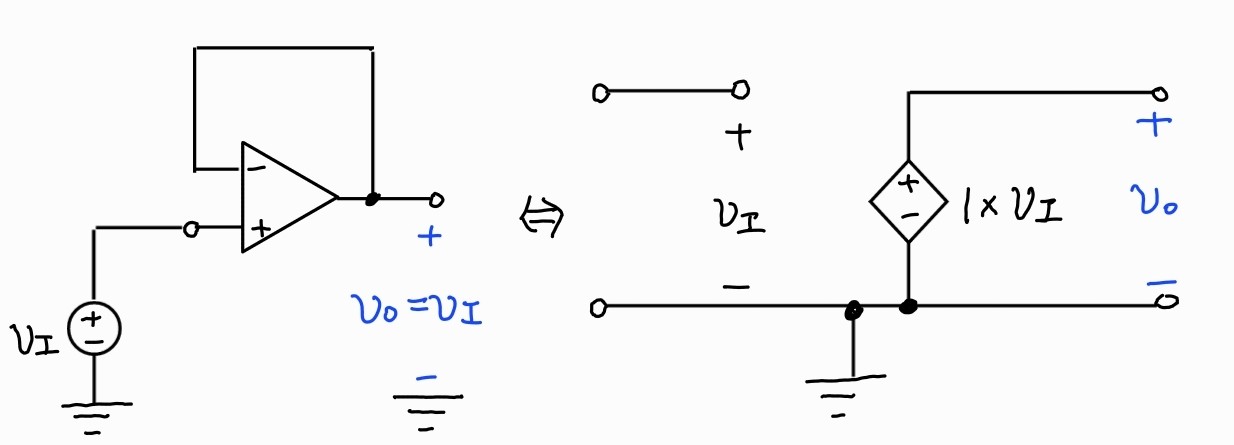 −
+
+
−
v_I
+
v_o = v_I
−
⇔
+
v_I
−
+
−
1 × v_I
+
v_o
−